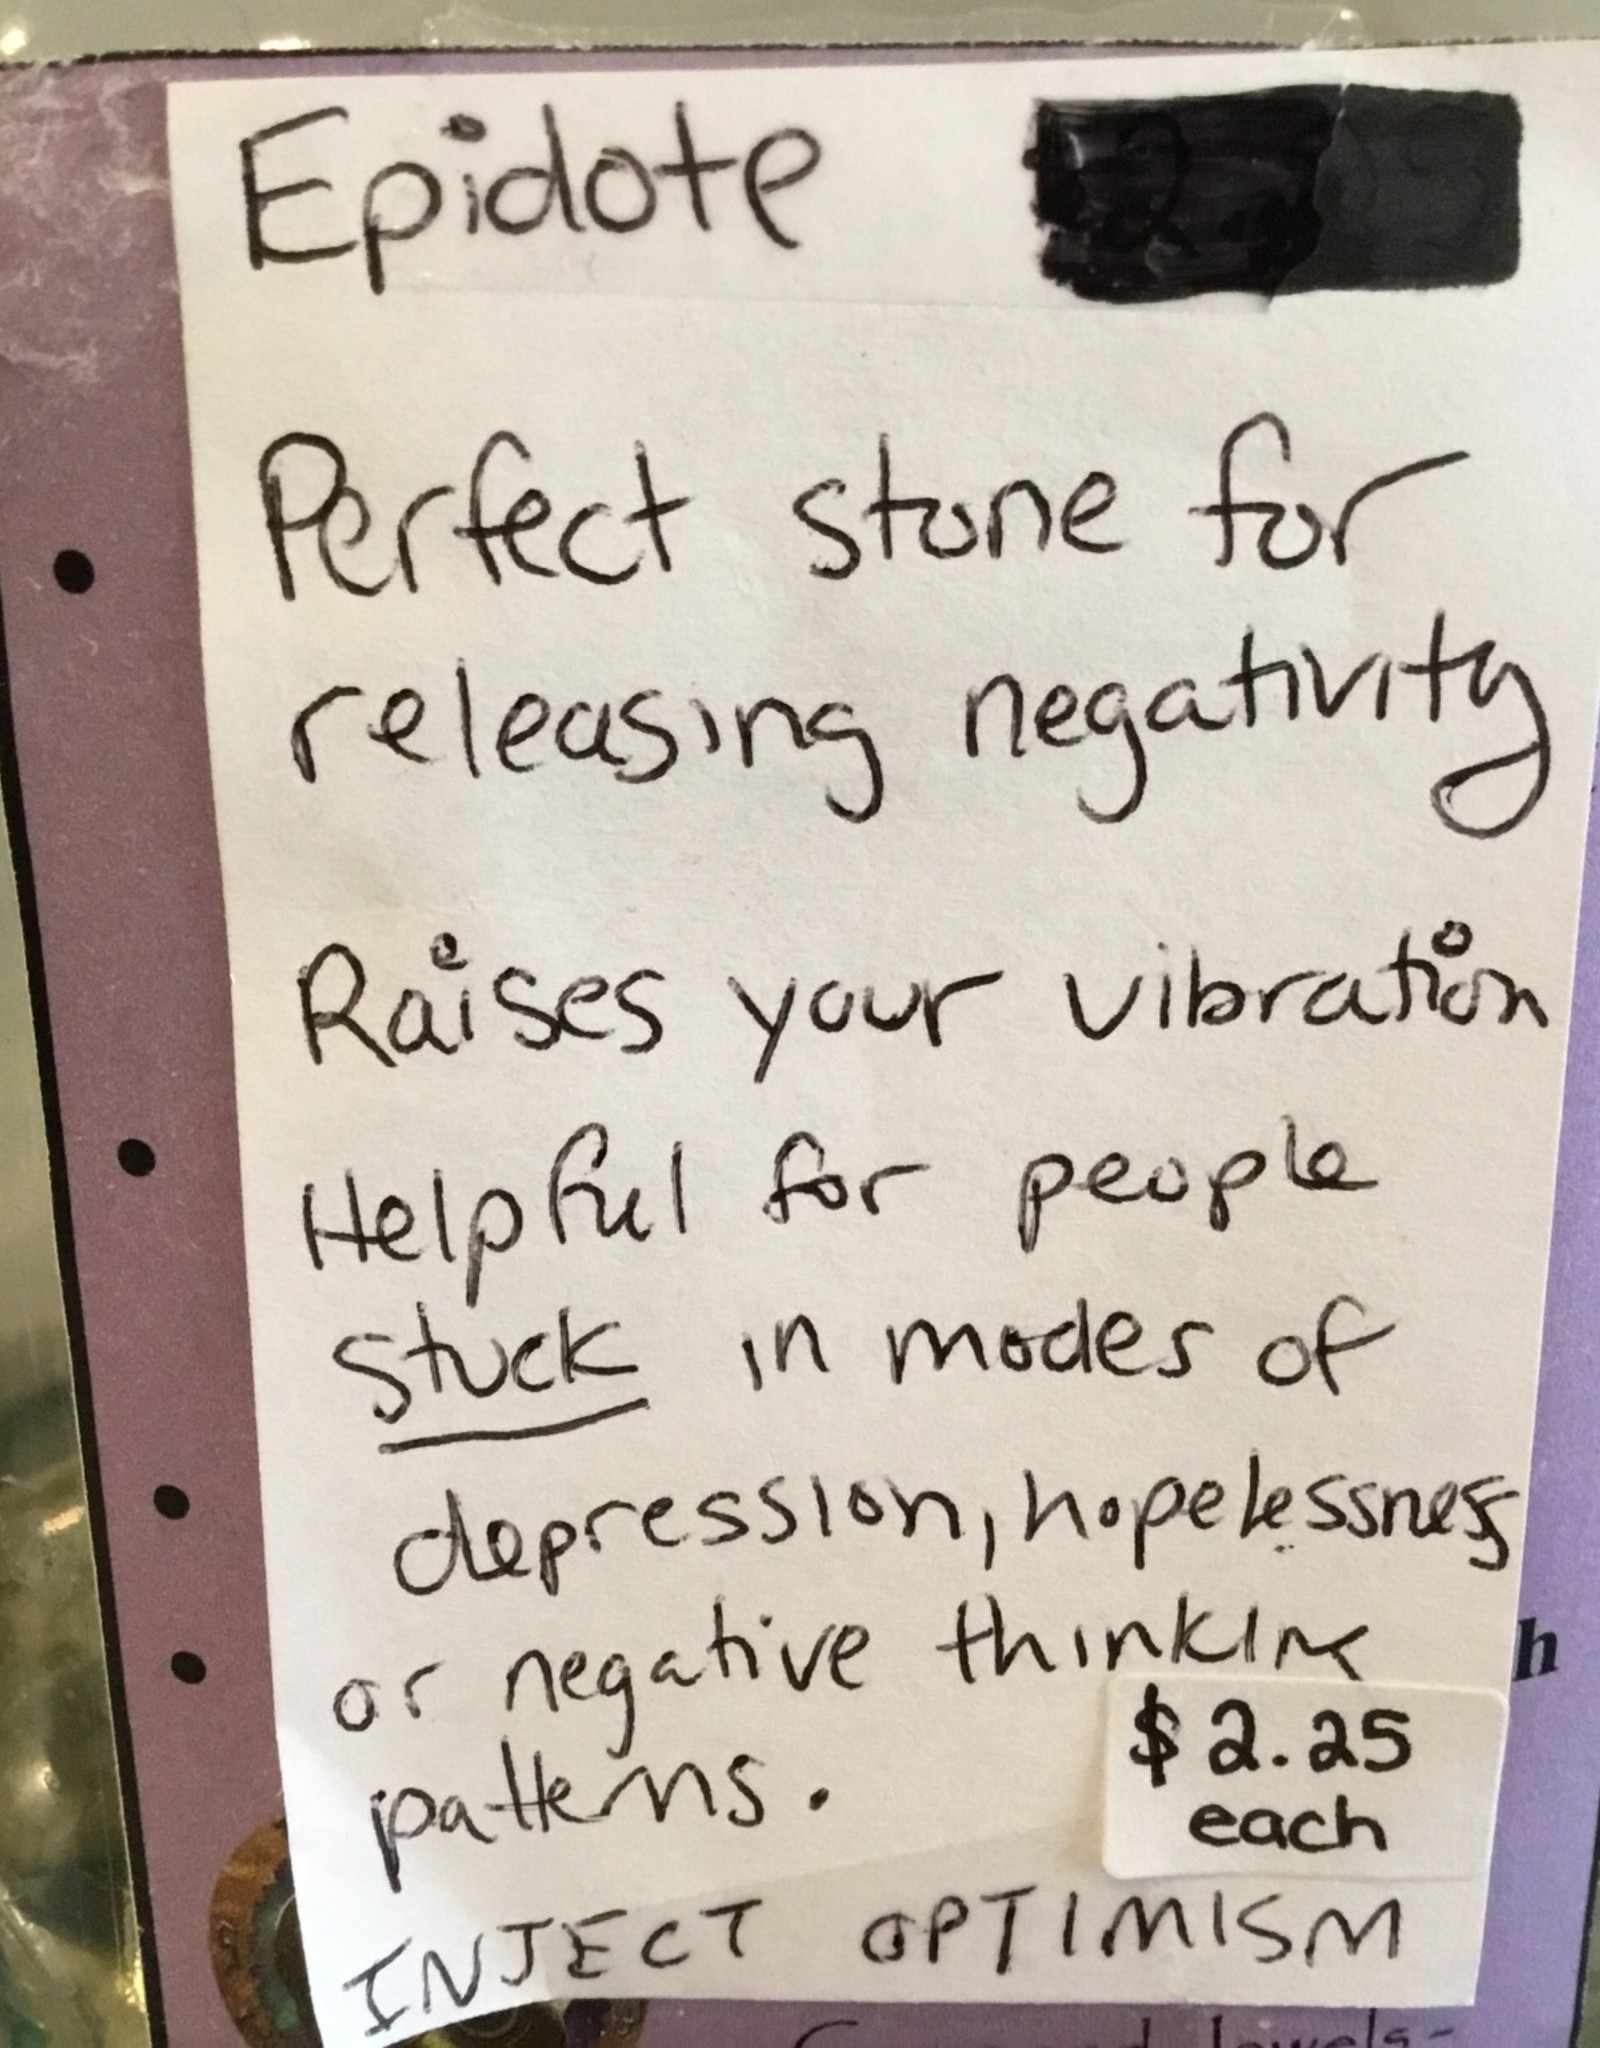 Epidote
Perfect stone for
releasing negativity
Raises your vibration
Helpful for people
stuck in modes of
depression, hopelessness
or negative thinking
$2.25
patterns.
each
INJECT OPTIMISM
h